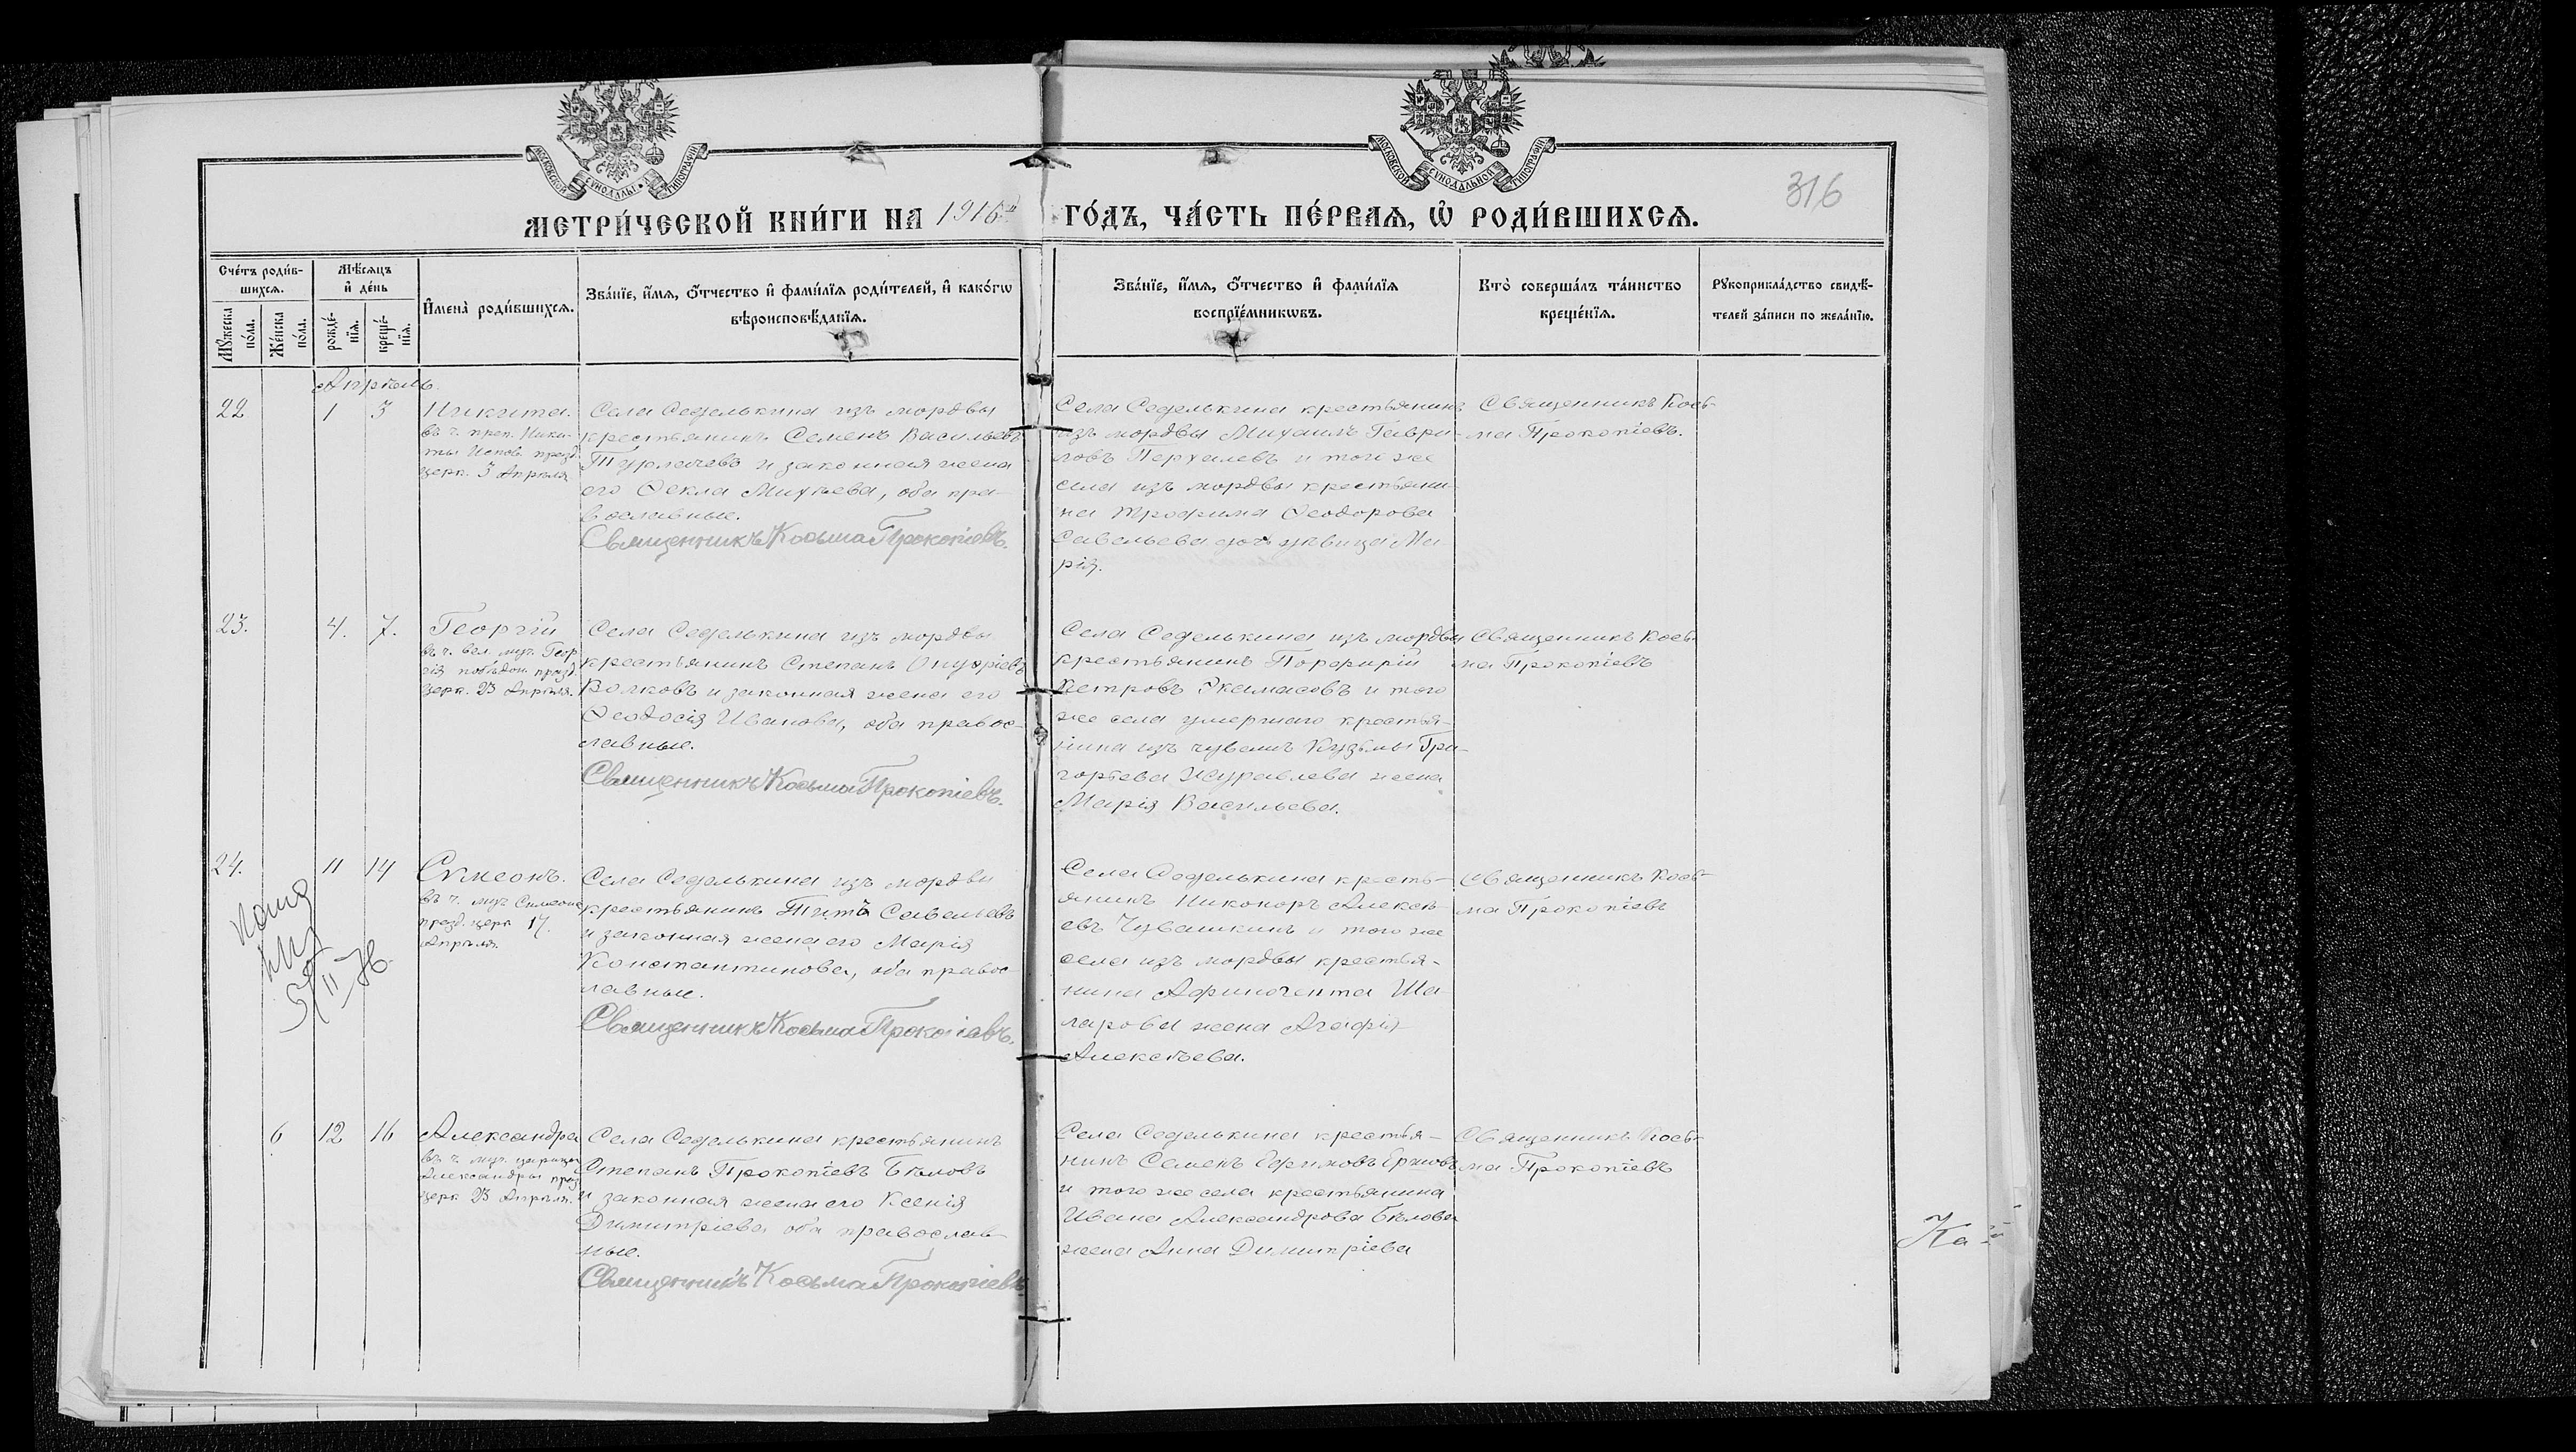 МОСКОВСКОЙ СѴНОДАЛЬНОЙ ТИПОГРАФІИ
МОСКОВСКОЙ СѴНОДАЛЬНОЙ ТИПОГРАФІИ
316
МЕТРИ́ЧЕСКОЙ КНИ́ГИ НА 1916й ГО́ДЪ, ЧА́СТЬ ПЕ́РВАѦ, Ѡ҆ РОДИ́ВШИХСѦ.
Сче́тъ роди́в-
шихсѧ.
Мꙋ́жеска
по́ла.
Же́нска
по́ла.
Мѣ́сѧцъ
и҆ де́нь
рожде́-
нїѧ.
креще́-
нїѧ.
И҆мена̀ роди́вшихсѧ.
Зва́нїе, и҆́мѧ, ѻ҆́тчество и҆ фами́лїѧ роди́телей, и҆ како́гѡ
вѣроисповѣ́данїѧ.
Зва́нїе, и҆́мѧ, ѻ҆́тчество и҆ фами́лїѧ
воспрїе́мникѡвъ.
Кто̀ соверша́лъ та́инство
креще́нїѧ.
Рꙋкоприкла́дство свидѣ́-
телей за́писи по жела́нїю.
Апрѣль.
22
1
3
Никита.
въ ч. преп. Ники-
ты Испов. празд.
церк. 3 Апрѣля
Села Седелькина изъ мордвы
крестьянинъ Семенъ Васильевъ
Турлачевъ и законная жена
его Ѳекла Михѣева, оба пра-
вославные.
Священникъ Косьма Прокопіевъ.
Села Седелькина крестьянинъ
изъ мордвы Михаилъ Гаври-
ловъ Перхалевъ и той же
села изъ мордвы крестьяни-
на Трофима Ѳеодорова
Савельева дочь дѣвица Ма
рія.
Священникъ Кось-
ма Прокопіевъ.
23.
4.
7.
Георгій
въ ч. вел. муч. Геор
гія побѣдон. празд.
церк. 23 Апрѣля.
Села Седелькина изъ мордвы
крестьянинъ Степанъ Онуфріевъ
Волковъ и законная жена его
Ѳеодосія Иванова, оба правос-
лавные.
Священникъ Косьма Прокопіевъ.
Села Седелькина изъ мордвы
крестьянинъ Порфирій
Петровъ Экамасовъ и того
же села умершаго крестья-
нина изъ чувашъ Кузьмы Гри-
горьева Журавлева жена
Марія Васильева.
Священникъ Кось-
ма Прокопіевъ
24.
11
14
Сѵмеонъ.
въ ч. муч. Симеона
празд. церк 17.
Апрѣля.
Села Седелькина изъ мордвы
крестьянинъ Титъ Савельевъ
и законная жена его Марія
Константинова, оба правос
лавные.
Священникъ Косьма Прокопіевъ.
Села Седелькина кресть-
янинъ Никаноръ Алексѣ-
евъ Чувашкинъ и того же
села изъ мордвы крестья-
нина Афиногента Ша-
ларова жена Агафія
Алексѣева.
Священникъ Кось-
ма Прокопіевъ
6
12
16
Александра
въ ч. муч. царицы
Александры праз
церк 23 Апрѣля.
Села Седелькина крестьянинъ
Степанъ Прокопіевъ Бѣловъ
и законная жена его Ксенія
Димитріева оба православ-
ные.
Священникъ Косьма Прокопіевъ
Села Седелькина крестья-
нинъ Семенъ Ефимовъ Ершовъ
и того же села крестьянина
Ивана Александрова Бѣлова
жена Анна Димитріева
Священникъ Кось-
ма Прокопіевъ
Ка